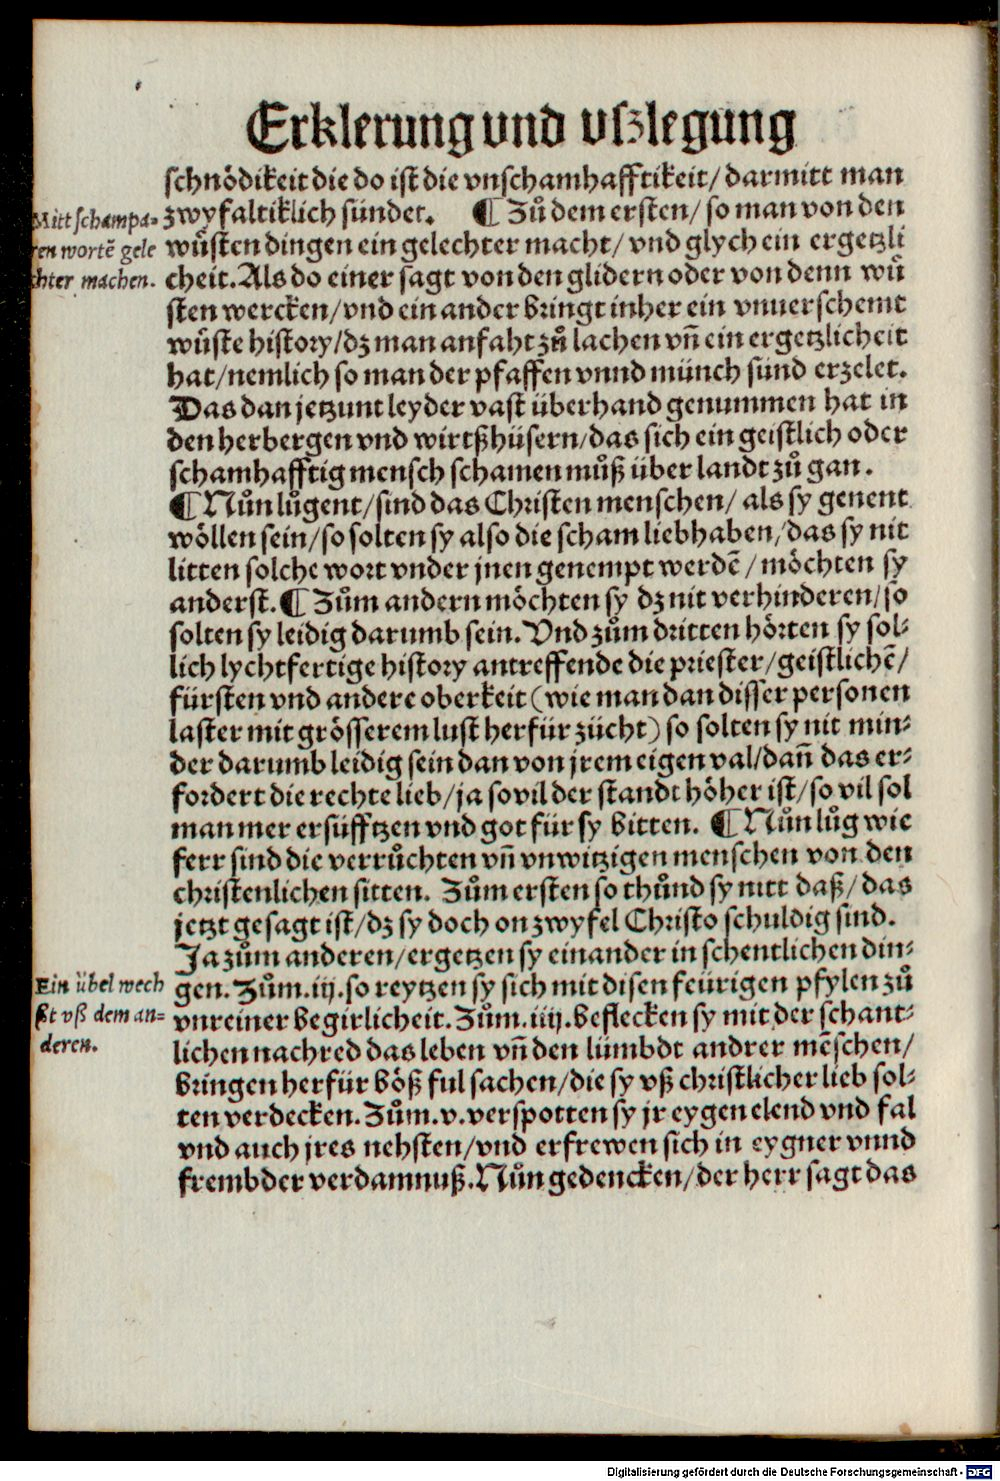 Erklerung vnd vſzlegung
ſchnödikeit die do iſt die vnſchamhafftikeit/ darmitt man
zwyfaltiklich ſündet. ¶ Zů dem erſten/ ſo man von den
wůſten dingen ein gelechter macht/ vnd glych ein ergetzli
cheit. Als do einer ſagt von den glidern oder von denn wů
ſten wercken/ vnd ein ander bringt inher ein vnuerſchemt
wůſte hiſtory/ dz man anfaht zů lachen vn̄ ein ergetzlicheit
hat/ nemlich ſo man der pfaffen vnnd münch ſünd erzelet.
Das dan jetzunt leyder vaſt überhand genummen hat in
den herbergen vnd wirtßhüſern/ das ſich ein geiſtlich oder
ſchamhafftig menſch ſchamen můß über landt zů gan.
¶ Nůn lůgent/ ſind das Chriſten menſchen/ als ſy genent
wöllen ſein/ ſo ſolten ſy alſo die ſcham liebhaben/ das ſy nit
litten ſolche wort vnder jnen genempt werdē/ möchten ſy
anderſt. ¶ Zům andern möchten ſy dz nit verhinderen/ ſo
ſolten ſy leidig darumb ſein. Vnd zům dritten hörten ſy ſol⸗
lich lychtfertige hiſtory antreffende die prieſter/ geiſtlichē/
fürſten vnd andere oberkeit (wie man dan diſſer perſonen
laſter mit gröſſerem luſt herfür zücht) ſo ſolten ſy nit min⸗
der darumb leidig ſein dan von jrem eigen val/ dan̄ das er⸗
fordert die rechte lieb/ ja ſo vil der ſtandt höher iſt/ ſo vil ſol
man mer erſüfftzen vnd got für ſy bitten. ¶ Nůn lůg wie
ferr ſind die verrůchten vn̄ vnwitzigen menſchen von den
chriſtenlichen ſitten. Zům erſten ſo thůnd ſy nitt daß/ das
jetzt geſagt iſt/ dz ſy doch on zwyfel Chriſto ſchuldig ſind.
Ja zům anderen/ ergetzen ſy einander in ſchentlichen din⸗
gen. Zům .iij. ſo reytzen ſy ſich mit diſen feürigen pfylen zů
vnreiner begirlicheit. Zům .iiij. beflecken ſy mit der ſchant⸗
lichen nachred das leben vn̄ den lümbdt andrer mēſchen/
bringen herfür böß ful ſachen/ die ſy vß chriſtlicher lieb ſol⸗
ten verdecken. Zům .v. verſpotten ſy jr eygen elend vnd fal
vnd auch jres nehſten/ vnd erfrewen ſich in eygner vnnd
frembder verdamnuß. Nůn gedencken/ der herr ſagt das
Mitt ſchampa⸗
ren wortē gele
chter machen.
Ein übel wech
ſt vß dem an⸗
deren.
Digitalisierung gefördert durch die Deutsche Forschungsgemeinschaft - DFG